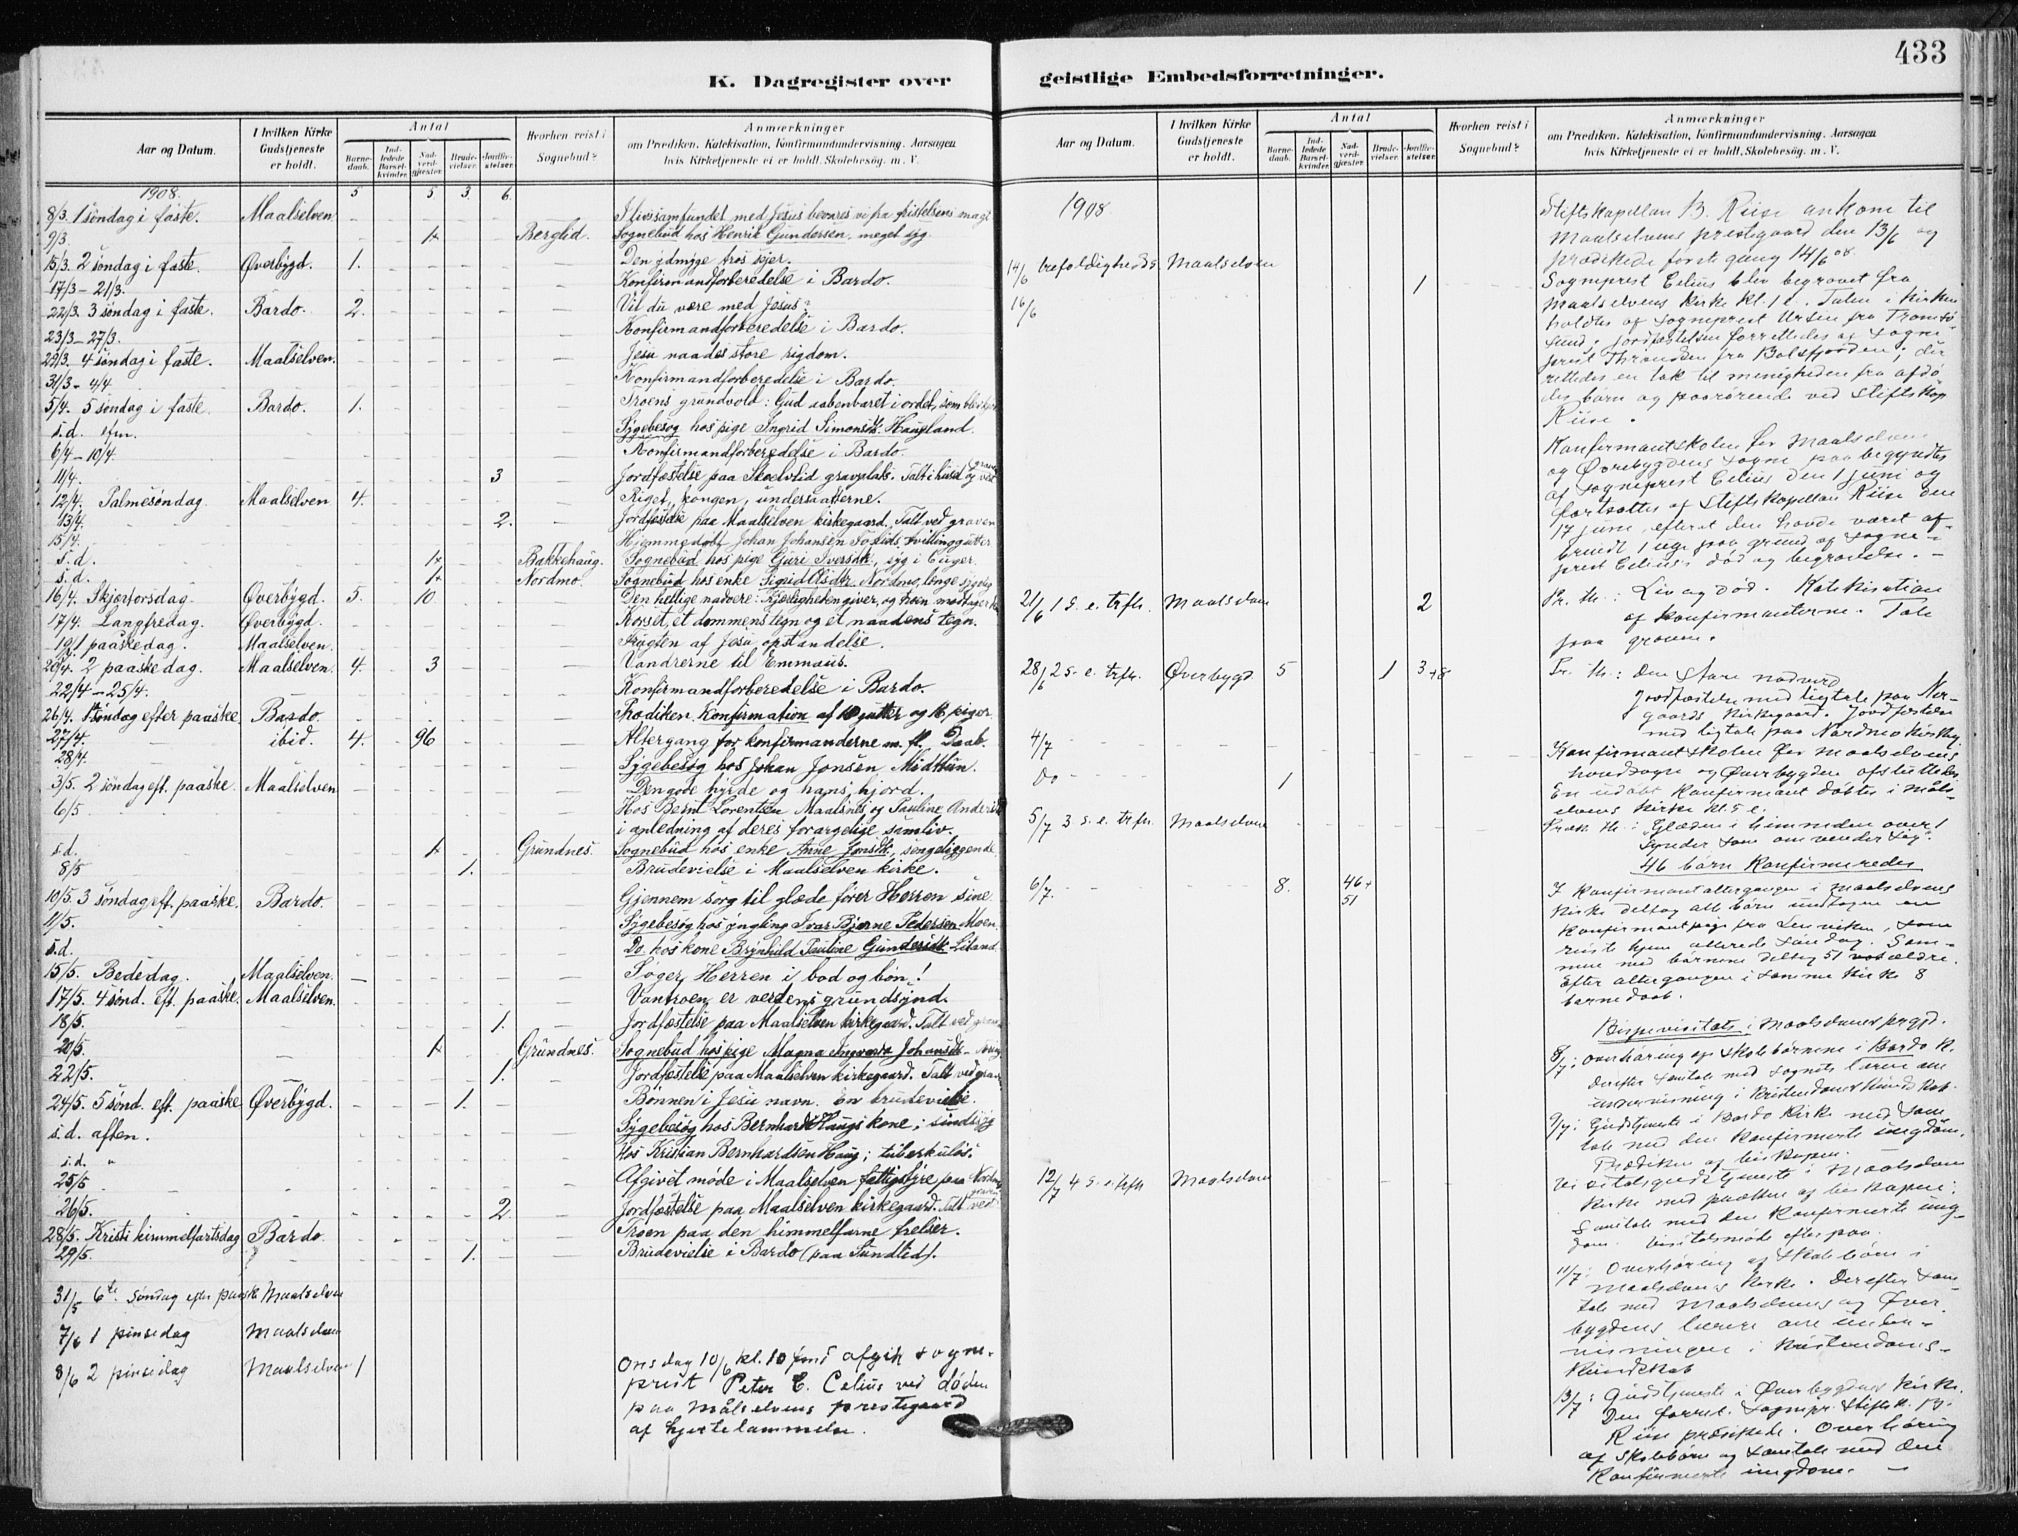 433
K. Dagregister over geistlige Embedsforretninger.
Aar og Datum. I hvilken Kirke Gudstjeneste er holdt. Antal Barnedaab. Indledede Barselkvinder. Nadverdgjæster. Brudevielser. Jordfæstelser. Hvorhen reist i Sognebud? Anmærkninger om Prædiken, Katekisation, Konfirmandundervisning. Aarsagen hvis Kirketjeneste ei er holdt. Skolebesøg. m. V.
1908. 5 5 3 6
8/3. 1 søndag i faste. Maalselven I livssamfundet med Jesus bevares vi fra fristelsens magt
9/3. 1+ Berglid. Sognebud hos Henrik Gundersen, meget syg.
15/3. 2 søndag i faste. Øverbygd. 1. Den ydmyge tros sejer.
17/3 – 21/3. Konfirmandforberedelse i Bardo.
22/3. 3 søndag i faste. Bardo. 2. Vil du være med Jesus?
23/3 – 27/3. Konfirmandforberedelse i Bardo.
29/3. 4 søndag i faste. Maalselven. Jesu naades store rigdom.
31/3 – 4/4 Konfirmandforberedelse i Bardo.
5/4. 5 søndag i faste. Bardo. 1. Troens grundvold: Gud aabenbaret i ordet, som blev
s.d. efm. Sygebesøg hos pige Ingrid Simonsdtr. Haugland.
6/4 – 10/4. Konfirmandforberedelse i Bardo.
11/4. 3 Jordfæstelse paa Skoelvlid gravplads. Talt i huset og ved graven
12/4. Palmesøndag Maalselven 4. Riget, kongen, undersaatterne.
13/4. 2. Jordfæstelse paa Maalselven kirkegaard. Talt ved graven
15/4. Hjemmedøbt Johan Johansen Fosslids tvillinggutter
s.d. 1+ Bakkehaug. Sognebud hos pige Guri Iversdtr., syg i
s.d. 1+ Nordmo. Sognebud hos enke Sigrid Olsdtr. Nordmo, længe sygelig
16/4. Skjærtorsdag. Øverbygd. 5. 10 Den hellige nadvere: Kjærligheten giver, og troen modtager
17/4. Langfredag. Øverbygd. Korset, et dommens tegn og et naadens tegn.
19/4 1 paaskedag. Maalselven. Frugten af Jesu opstandelse.
20/4. 2 paaskedag. Maalselven. 4. 3 Vandrerne til Emmaus.
22/4 – 25/4. Konfirmandforberedelse i Bardo.
26/4. 1 søndag efter paaske. Bardo. Prædiken. Konfirmation af 10 gutter og 16 piger
27/4. ibid. 4. 96 Altergang for konfirmanderne m. fl. Daab.
28/4. Sygebesøg hos Johan Jonsen Midthun.
3/5. 2 søndag eft. paaske. Maalselven Den gode hyrde og hans hjord.
6/5 Hos Bernt Lorentsen Maalsnes og Pauline Andersdtr.
i anledning af deres forargelige samliv.
s.d. 1+ Grundnes. Sognebud hos enke Anne Jonsdtr., sengeliggende
8/5 1. Brudevielse i Maalselven kirke.
10/5. 3 søndag eft. paaske. Bardo. Gjennem sorg til glæde fører Herren sine.
11/5. Sygebesøg hos yngling Ivar Bjarne Pedersen Moen
s.d. Do. hos kone Brynhild Pauline Gundersdtr. Liland.
15/5. Bededag. Maalselven. Søger Herren i bod og bøn!
17/5. 4 sønd. eft. paaske. Maalselven. Vantroen er verdens grundsynd.
18/5. 1. Jordfæstelse paa Maalselven kirkegaard. Talt ved graven
20/5. 1+ Grundnes. Sognebud hos pige Magna Ingvarda Johansdtr.
22/5. 1. Jordfæstelse paa Maalselven kirkegaard. Talt ved graven
24/5. 5 sønd. eft. paaske Øverbygd. 1. Bønnen i Jesu navn. En brudevielse.
s.d. aften. Sygebesøg hos Bernhard Haugs kone; sindssyg
s.d. " Hos Kristian Bernhardsen Haug; tuberkuløs.
25/5 Afgivet møde i Maalselven fattigstyre paa
26/5. 2. Jordfæstelse paa Maalselven kirkegaard. Talt ved graven
28/5. Kristi himmelfartsdag Bardo. Troen paa den himmelfarne frelser.
29/5. 1. Brudevielse i Bardo (paa Sundlid).
31/5 6te søndag efter paaske Maalselven
7/6 1 pinsedag Maalselven
8/6 2 pinsedag Maalselven 1
Onsdag 10/6 kl. 10 fmd afgik sogne-
prest Peter E. Celius ved døden
paa Målselvens prestegaard
af hjertelammelse.
Aar og Datum. I hvilken Kirke Gudstjeneste er holdt. Antal Barnedaab. Indledede Barselkvinder. Nadverdgjæster. Brudevielser. Jordfæstelser. Hvorhen reist i Sognebud? Anmærkninger om Prædiken, Katekisation, Konfirmandundervisning. Aarsagen hvis Kirketjeneste ei er holdt, Skolebesøg. m. V.
1908
Stiftskapellan B. Riise ankom til
Maalselvens prestegaard den 13/6 og
prædikede første gang 14/6 08.
14/6 trefoldigheds. Maalselven
16/6 1 Sogneprest Celius blev begravet fra
Maalselvens kirke kl. 12. Talen i kirken
holdtes af sogneprest Ursen fra Tromsø-
sund, jordfæstelsen forrettedes af sogne-
prest Throndsen fra Balsfjorden; der
rettedes en tak til menigheden fra afdø-
des barn og paarørende ved Stiftskap.
Riise.
Konfirmantskolen for Maalselven
og Øverbygdens sogne paabegyndtes
af sogneprest Celius den 1 juni og
fortsattes af Stiftskapellan Riise den
17 juni, efterat den havde været af-
brudt 1 uge paa grund af sogne-
prest Celius' død og begravelse. –
21/6 1 s. e. trfh. Maalselven 2 Pr. th.: Liv og død. Katekisation
af konfirmanterne. Tale
paa graven.
28/6 2 s. e. trfh. Øverbygd 5 1 3+8 Pr. th.: Den store nadverd
Jordfæstelse med ligtale paa Nor-
gaards kirkegaard. Jordfæstelse
med ligtale paa Nordmo kirkeg.
4/7 Konfirmantskolen for Maalselvens
hovedsogn og Øverbygden afsluttedes.
Do 1 En udøbt konfirmant døbtes i Måls-
elvens kirke kl. 5 e.
5/7 3 s. e. trfh. Maalselven Præd. th.: Glæden i himmelen over 1
synder som omvender sig.
46 børn konfirmeredes
6/7. 8. 46+ I konfirmantaltergangen i Maalselvens
51 kirke deltog alle børn undtagen en
konfirmantpige fra Lenviken, som
reiste hjem allerede søndag. Sam-
men med børnene deltog 51 ældre.
Efter altergangen i samme kirke 8
barnedaab.
Bispevisitats i Maalselvens prgjd.
8/7: Overhøring af skolebørnene i Bardo k.
Derefter samtale med sognets lærere om
undervisning i kristendomskundskab.
9/7: Gudstjeneste i Bardo kirke med sam-
tale med den konfirmerte ungdom.
Prædiken af biskopen.
12/7 4 s. e. trfh Maalselven Visitatsgudstjeneste i Maalselven
kirke med prædiken af biskopen;
Samtale med den konfirmerte ung-
dom. Visitatsmøde efterpaa.
11/7: Overhøring af skolebørn i
Maalselvens kirke. Derefter sam-
tale med Maalselvens og Øver-
bygdens lærere om under-
visningen i kristendoms-
kundskab
13/7: Gudstjeneste i Øverbygdens kirke.
Den forret. sognepr. Stiftsk. B.
Riise prædikede. Overhøring
af skolebørn og samtale med den
konfirmerte ungdom. –